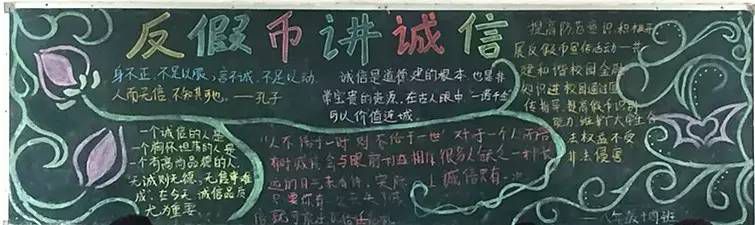 反假币讲诚信
身不正,不足以服,言不诚,不足以动
人而无信 不知其可也。——孔子
一个诚信的人是
一个胸怀坦荡的人是
一个有高尚品德的人,
无诚则无德,无信事难
成,在今天,诚信品质
尤为重要。
诚信是道德建的根本 也是非
常宝贵的资源,在古人眼中 一诺千金
可以价值连城。
人不信于一时 则不信于一世 对于一个人不信
有时诚信会与眼前利益相
诚信只有一次
只要你有
提高防范意识,积极开
展反假币宣传运动 共
建和谐校园金融
知识进校园通过宣
传指导 提高假币识别
能力 维护广大师生合
法权益不受
非法侵害
——八年级十四班